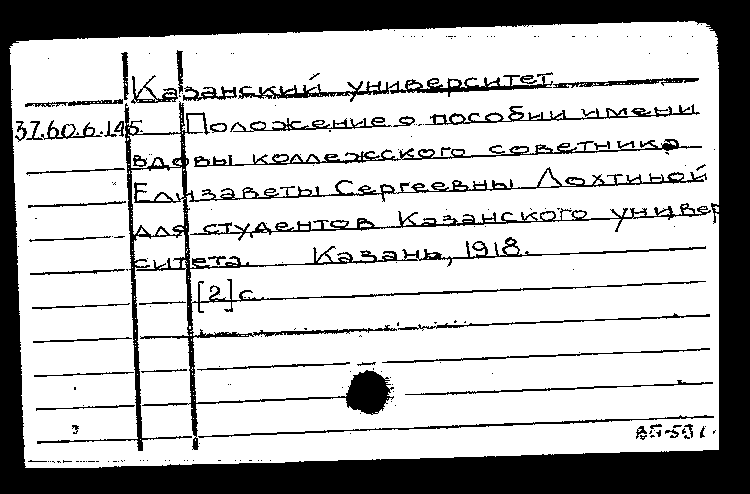 Казанский университет
37.60.6.145 Положение о пособии имени
вдовы коллежского советника
Елизаветы Сергеевны Лохтиной
для студентов Казанского универ
ситета. Казань, 1918.
[2]с.